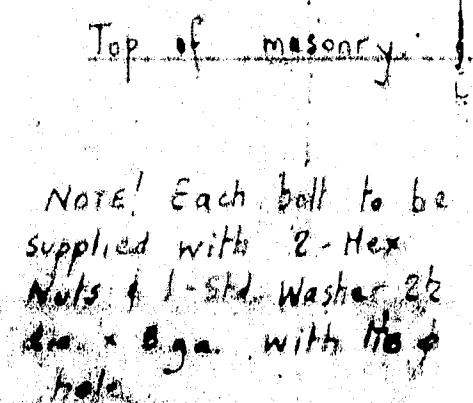 Top of masonry.
NOTE! Each bolt to be
supplied with 2-Hex
Nuts & 1-Std. Washer 2½
dia. × 8 ga. with ϕ
hole